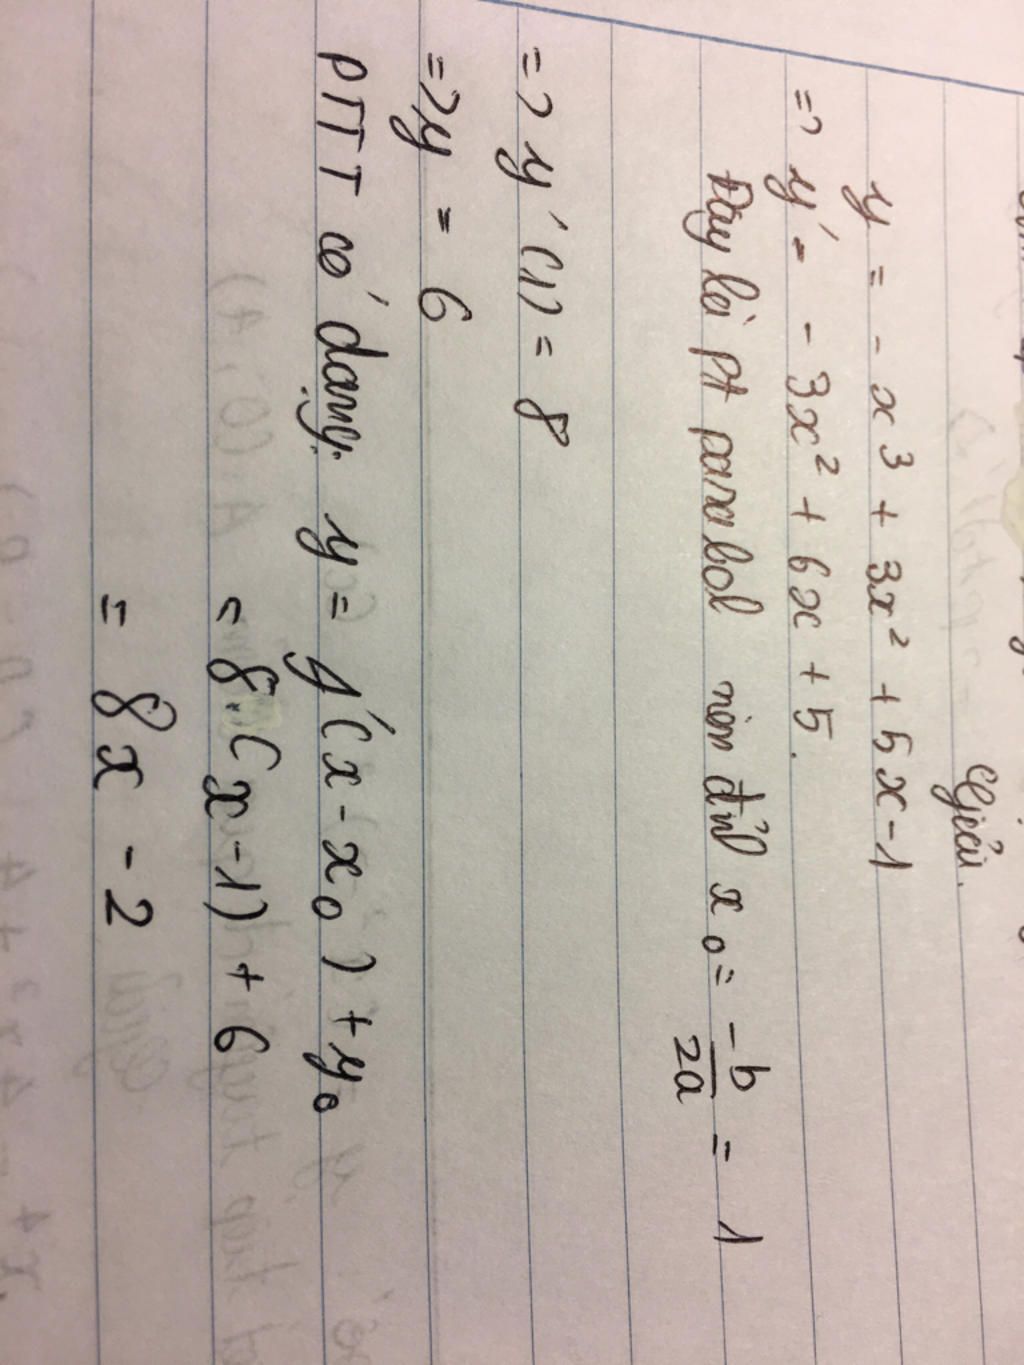 Giải.
y = - x³ + 3x² + 5x - 1
=> y' = - 3x² + 6x + 5.
Đây là pt parabol nên đỉnh x₀ = -b/2a = 1
=> y'(1) = 8
=> y = 6
PTTT có dạng: y = y'(x - x₀) + y₀
= 8.(x - 1) + 6
= 8x - 2